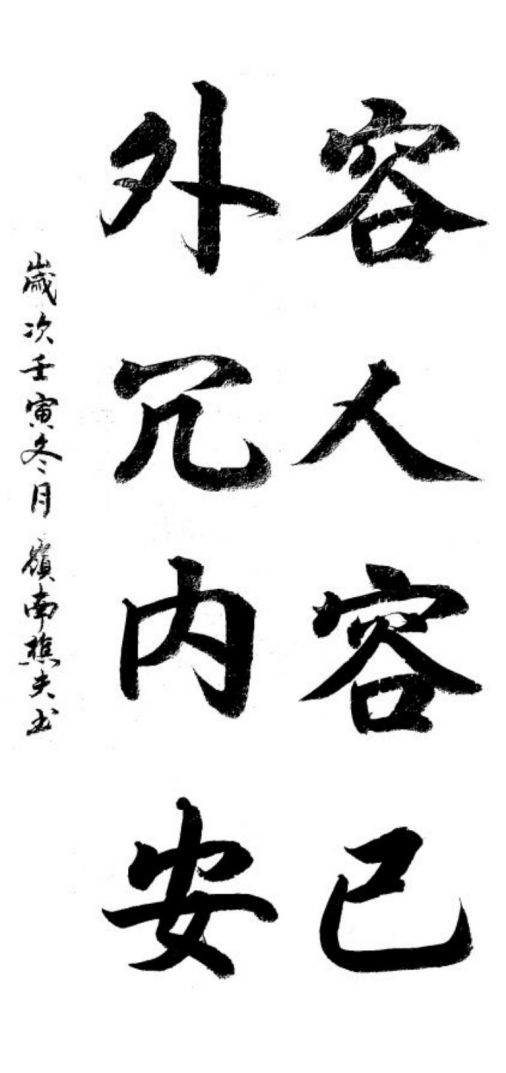 容人容己
外冗内安
歲次壬寅冬月 嶺南樵夫书